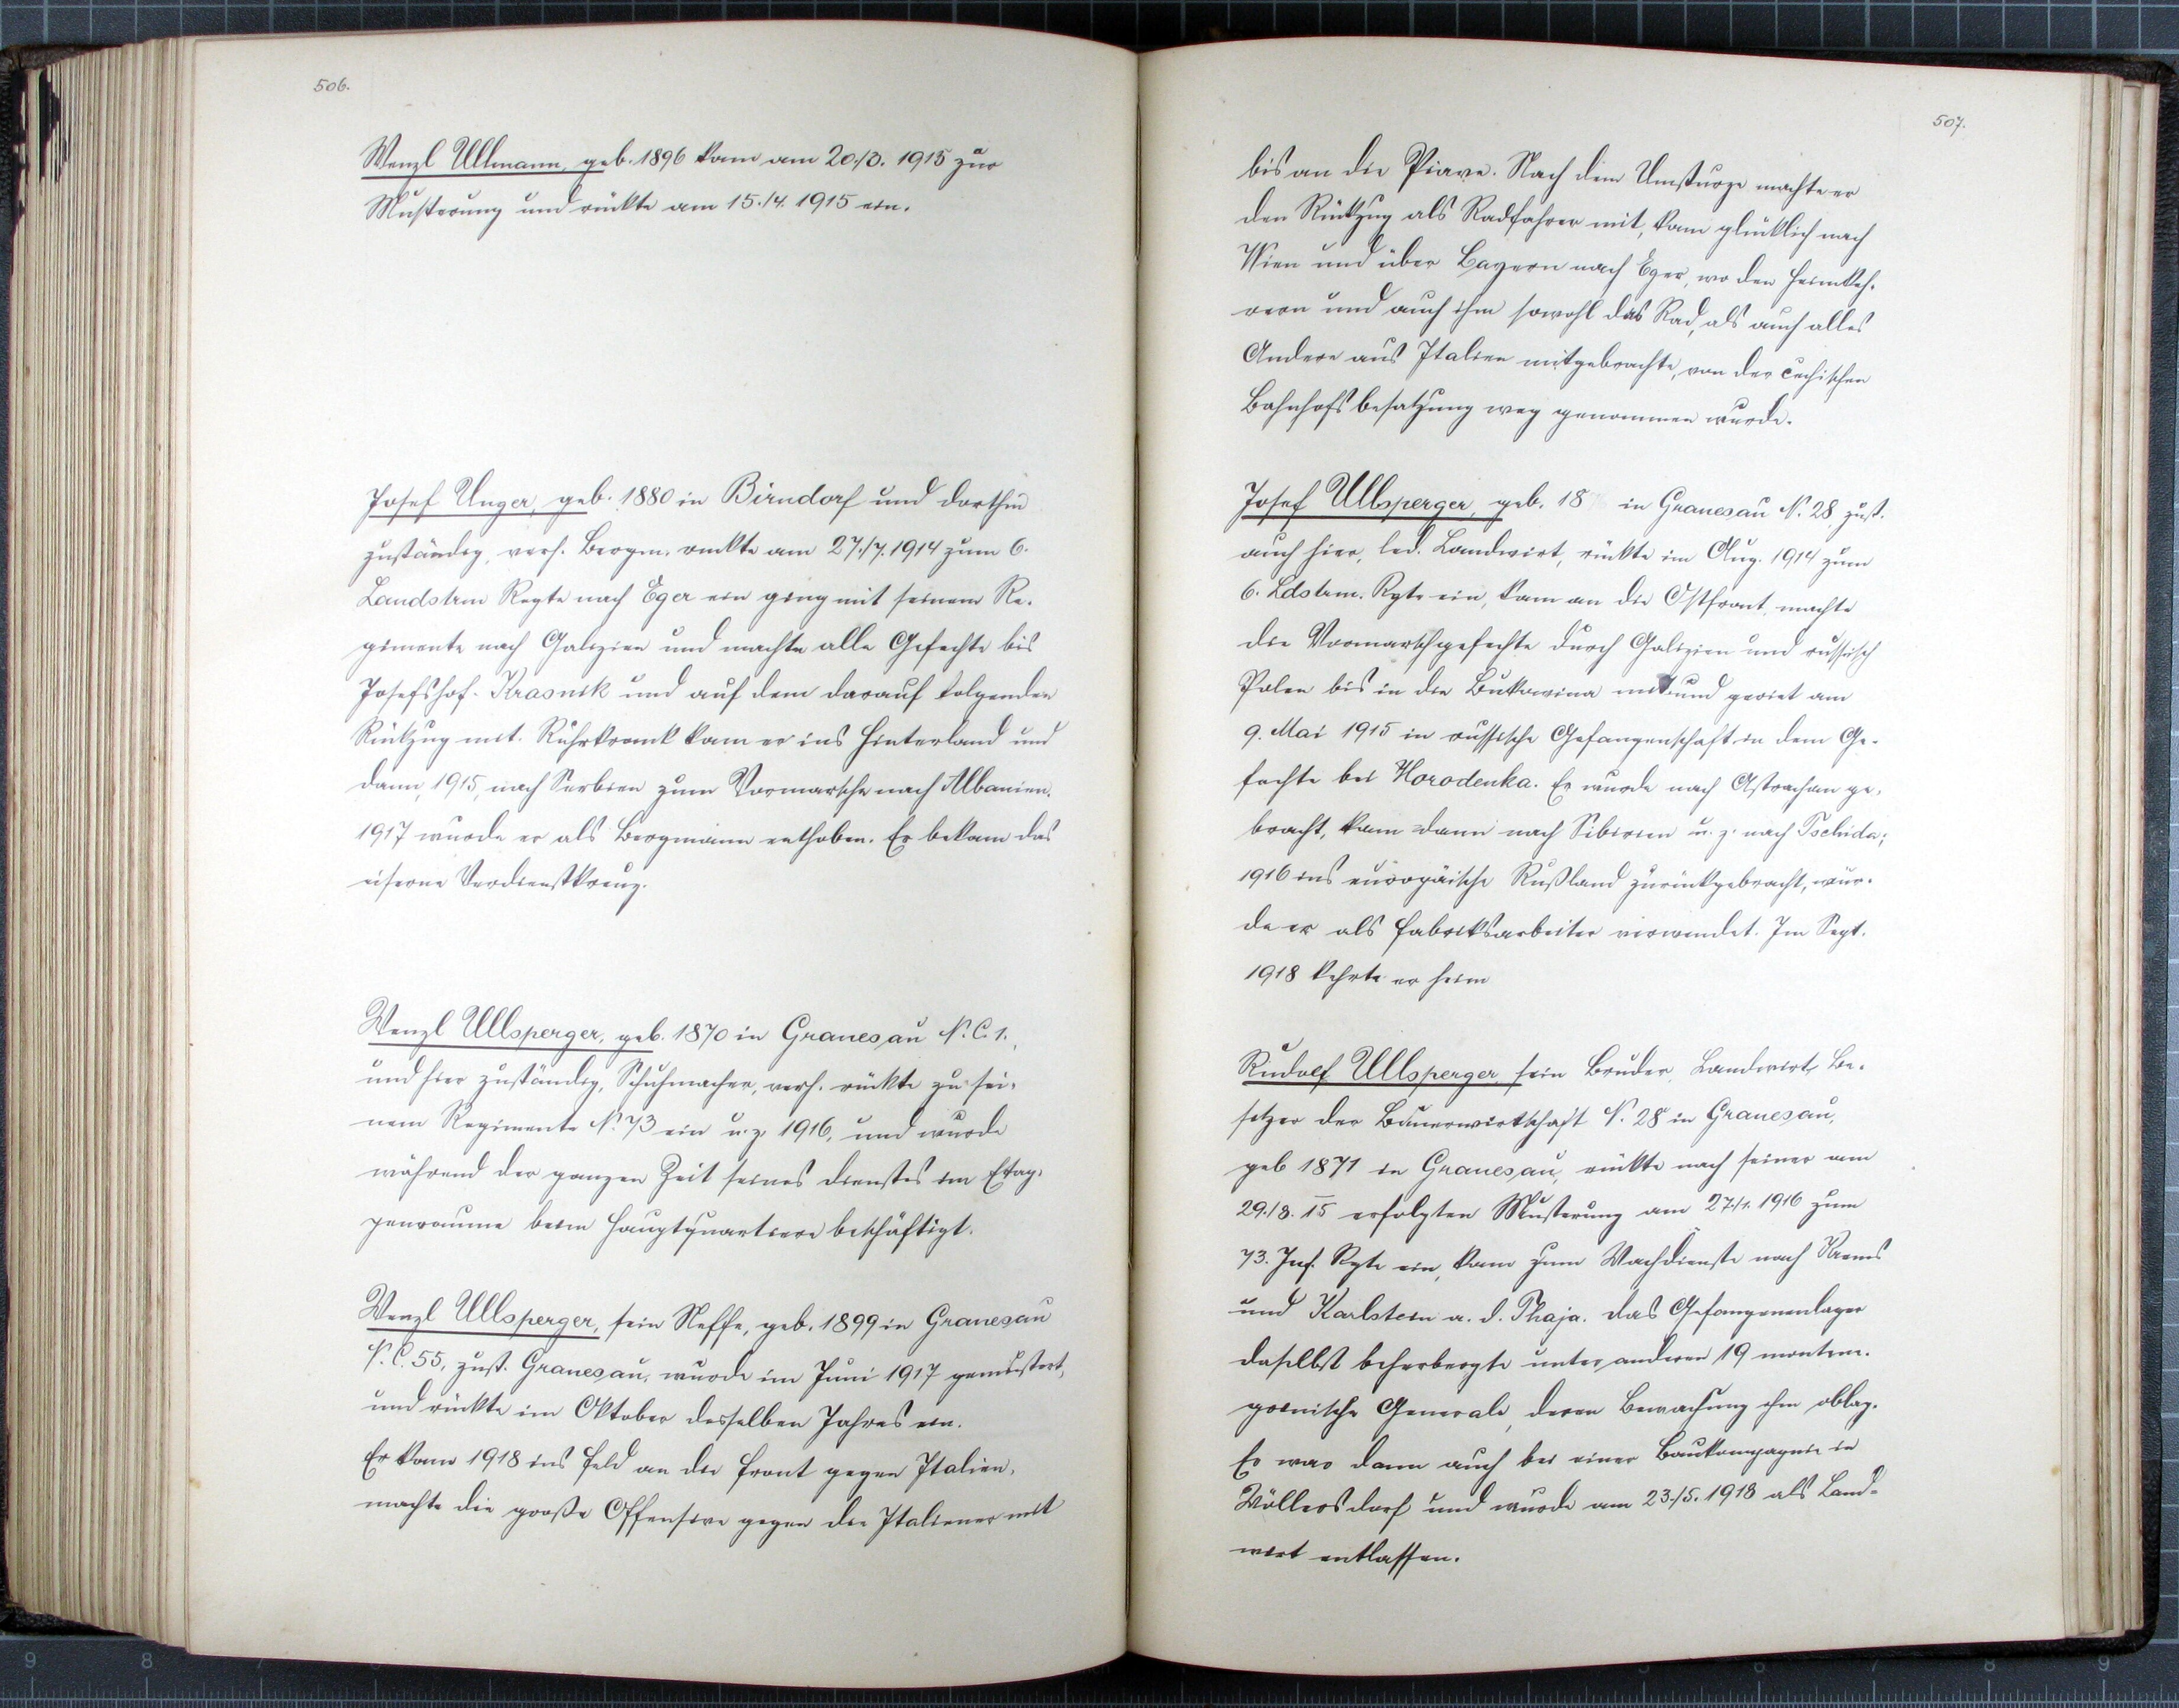 506.
Wenzl Ullmann, geb. 1896 kam am 20./3. 1915 zur
Musterung und rückte am 15./4. 1915 ein.
Josef Unger, geb. 1880 in Birndorf und dorthin
zuständig, verh. Bergm. rückte am 27./7. 1914 zum 6.
Landstrm Regte nach Eger ein ging mit seinem Re-
gimente nach Galizien und machte alle Gefechte bis
Josefshof-Krasnik und auf dem darauf folgenden
Rückzug mit. Ruhrkrank kam er ins Hinterland und
dann, 1915, nach Serbien zum Vormarsche nach Albanien.
1917 wurde er als Bergmann enthoben. Er bekam das
eiserne Verdienstkreuz.
Wenzl Ullsperger, geb. 1870 in Granesau N.C. 1.
und hier zuständig, Schuhmacher, verh. rückte zu sei-
nem Regimente N. 73 ein u. z. 1916, und wurde
während der ganzen Zeit seines Dienstes im Etap-
penraume beim Hauptquartiere beschäftigt.
Wenzl Ullsperger, sein Neffe, geb. 1899 in Granesau
N.C. 55, zust. Granesau, wurde im Juni 1917 gemustert,
und rückte im Oktober desselben Jahres ein.
Er kam 1918 ins Feld an die Front gegen Italien,
machte die große Offensive gegen die Italiener mit
507.
bis an die Piave. Nach dem Umsturze machte er
den Rückzug als Radfahrer mit, kam glücklich nach
Wien und über Bayern nach Eger, wo den Heimkeh-
rern und auch ihm sowohl das Rad, als auch alles
Andere aus Italien mitgebrachte, von der čechischen
Bahnhofsbesatzung weg genommen wurde.
Josef Ullsperger, geb. 18 in Granesau N. 28, zust.
auch hier, led. Landwirt, rückte im Aug. 1914 zum
6. Ldstrm. Rgte ein, kam an die Ostfront, machte
die Vormarschgefechte durch Galizien und russisch
Polen bis in die Bukowina mit und geriet am
9. Mai 1915 in russische Gefangenschaft in dem Ge-
fechte bei Horodenka. Er wurde nach Astrachan ge-
bracht, kam dann nach Sibirien u. z. nach Tschida;
1916 ins europäische Rußland zurückgebracht, wur-
de er als Fabriksarbeiter verwendet. Im Sept.
1918 kehrte er heim
Rudolf Ullsperger sein Bruder, Landwirt, Be-
sitzer der Bauerwirtschaft N. 28 in Granesau,
geb 1871 in Granesau, rückte nach seiner am
29./8. 15 erfolgten Musterung am 27./1. 1916 zum
73. Inf. Rgte ein, kam zum Wachdienste nach Krems
und Karlstein a. d. Thaja. Das Gefangenenlager
daselbst beherbergte unter anderen 19 montene-
grinische Generale, deren Bewachung ihm oblag.
Er war dann auch bei einer Baukompagnie in
Wöllersdorf und wurde am 23./5. 1918 als Land-
wirt entlassen.